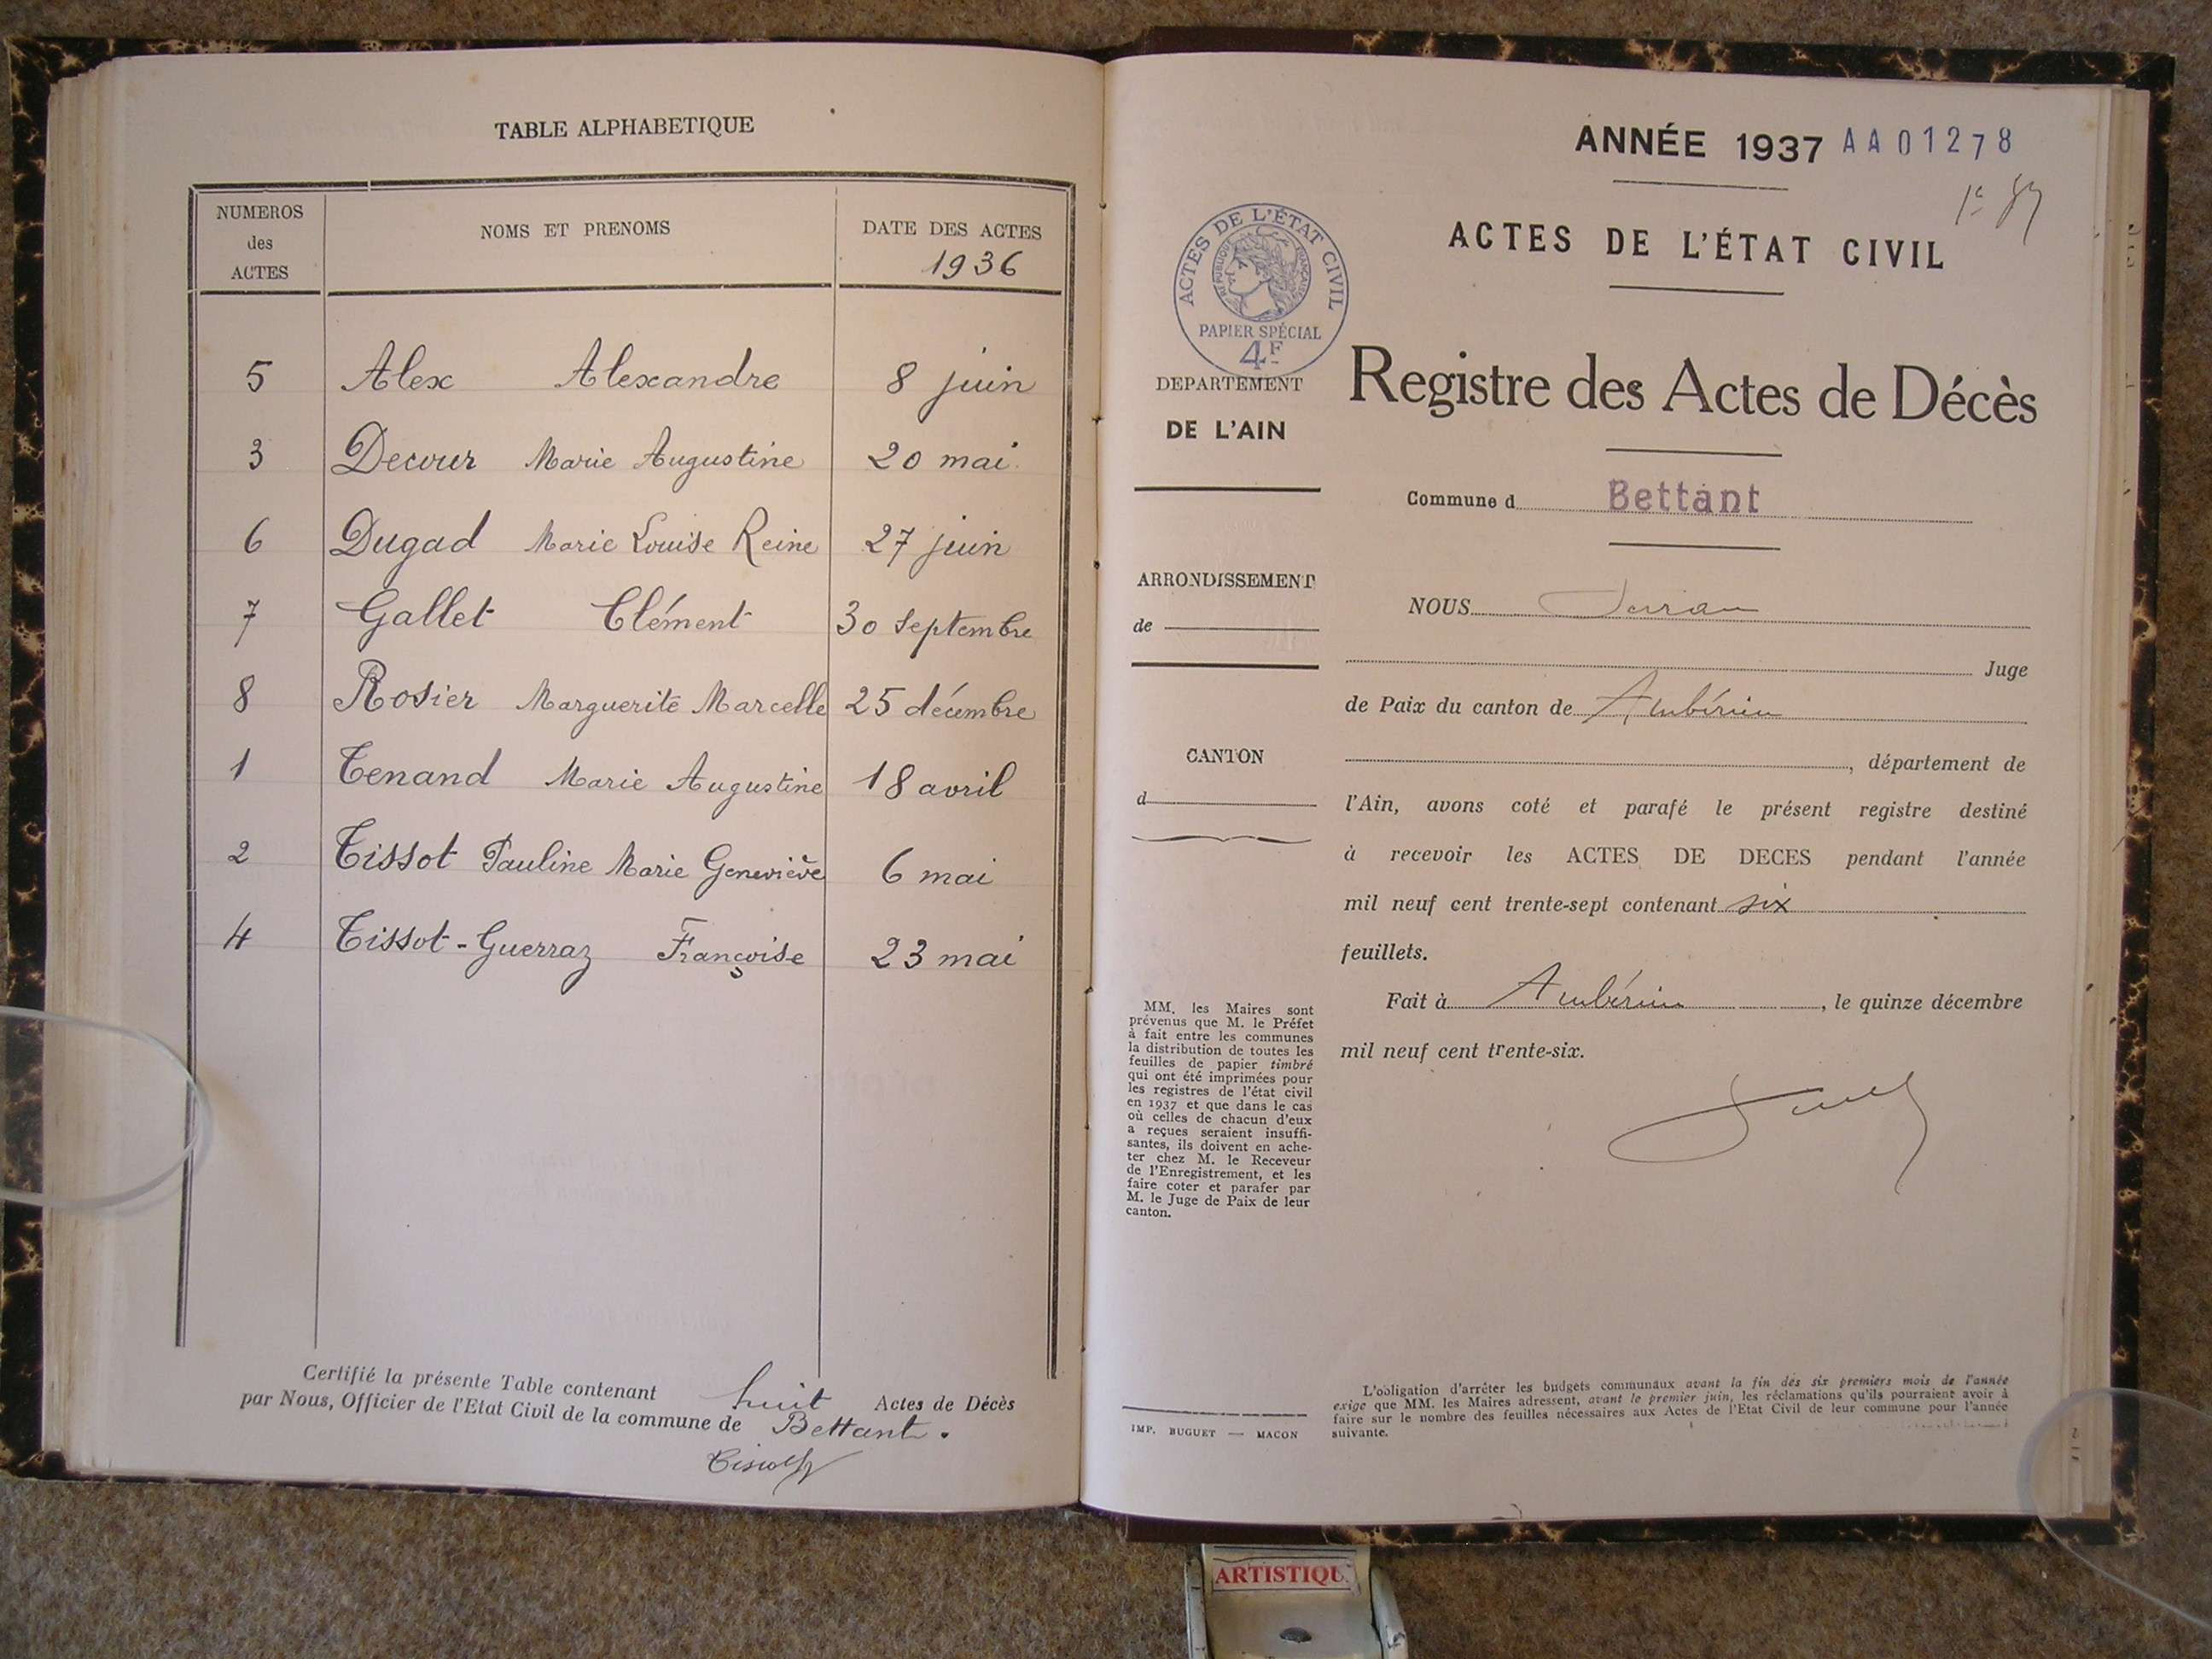 TABLE ALPHABETIQUE
NUMEROS
des
ACTES
NOMS ET PRENOMS
DATE DES ACTES
1936
5 Alex Alexandre 8 juin
3 Decour Marie Augustine 20 mai
6 Dugad Marie Louise Reine 27 juin
7 Gallet Clément 30 septembre
8 Rosier Marguerite Marcelle 25 décembre
1 Tenand Marie Augustine 18 avril
2 Tissot Pauline Marie Geneviève 6 mai
4 Tissot-Guerraz Françoise 23 mai
Certifié la présente Table contenant huit Actes de Décès
par Nous, Officier de l'Etat Civil de la commune de Bettant.
ANNÉE 1937 AA01278
ACTES DE L'ÉTAT CIVIL
ACTES DE L'ÉTAT CIVIL
RÉPUBLIQUE FRANÇAISE
PAPIER SPÉCIAL
4F
DEPARTEMENT
DE L'AIN
ARRONDISSEMENT
de
CANTON
d
MM. les Maires sont
prévenus que M. le Préfet
à fait entre les communes
la distribution de toutes les
feuilles de papier timbré
qui ont été imprimées pour
les registres de l'état civil
en 1937 et que dans le cas
où celles de chacun d'eux
a reçues seraient insuffi-
santes, ils doivent en ache-
ter chez M. le Receveur
de l'Enregistrement, et les
faire coter et parafer par
M. le Juge de Paix de leur
canton.
IMP. BUGUET — MACON
Registre des Actes de Décès
Commune d Bettant
NOUS
Juge
de Paix du canton de Ambérieu
, département de
l'Ain, avons coté et parafé le présent registre destiné
à recevoir les ACTES DE DECES pendant l'année
mil neuf cent trente-sept contenant six
feuillets.
Fait à Ambérieu, le quinze décembre
mil neuf cent trente-six.
L'obligation d'arrêter les budgets communaux avant la fin des six premiers mois de l'année
exige que MM. les Maires adressent, avant le premier juin, les réclamations qu'ils pourraient avoir à
faire sur le nombre des feuilles nécessaires aux Actes de l'Etat Civil de leur commune pour l'année
suivante.
ARTISTIQU